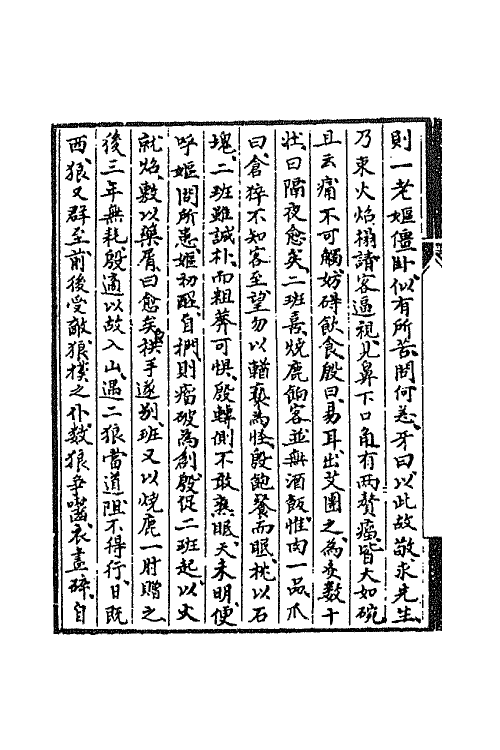 則一老嫗僵臥似有所苦問何恙牙曰以此故敬求先生
乃束火炤榻請客逼視見鼻下口角有兩贅瘤皆大如碗
且云痛不可觸妨碍飲食殷曰易耳出艾團之為灸數十
壯曰隔夜愈矣二班喜燒鹿餉客並無酒飯惟肉一品爪
曰倉猝不知客至望勿以輶褻為怪殷飽餐而眠枕以石
塊二班雖誠朴而粗莽可懼殷轉側不敢熟眠天未明便
呼嫗問所患嫗初醒自捫則瘤破為創殷促二班起以火
就炤敷以藥屑曰愈矣拱手遂別班又以燒鹿一肘贈之
後三年無耗殷適以故入山遇二狼當道阻不得行日既
西狼又群至前後受敵狼撲之仆數狼爭囓衣盡碎自